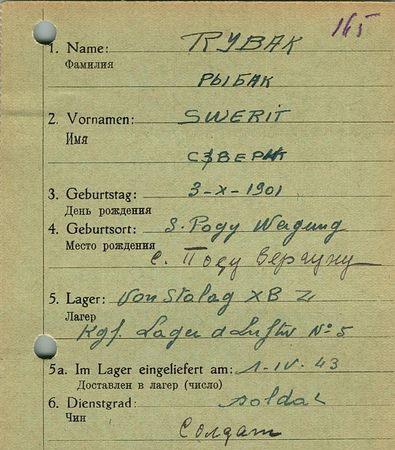 165
1. Name: RYBAK
Фамилия
РЫБАК
2. Vornamen: SWERIT
Имя
3. Geburtstag: 3-X-1901
День рождения
4. Geburtsort: S. Pogy Wergung
Место рождения
с. Погу Вергуну
5. Lager: Von Stalag XB Z
Лагер
Kgf. Lager d Luftw No 5
5a. Im Lager eingeliefert am: 1-IV-43
Доставлен в лагер (число)
6. Dienstgrad: soldat
Чин
Солдат